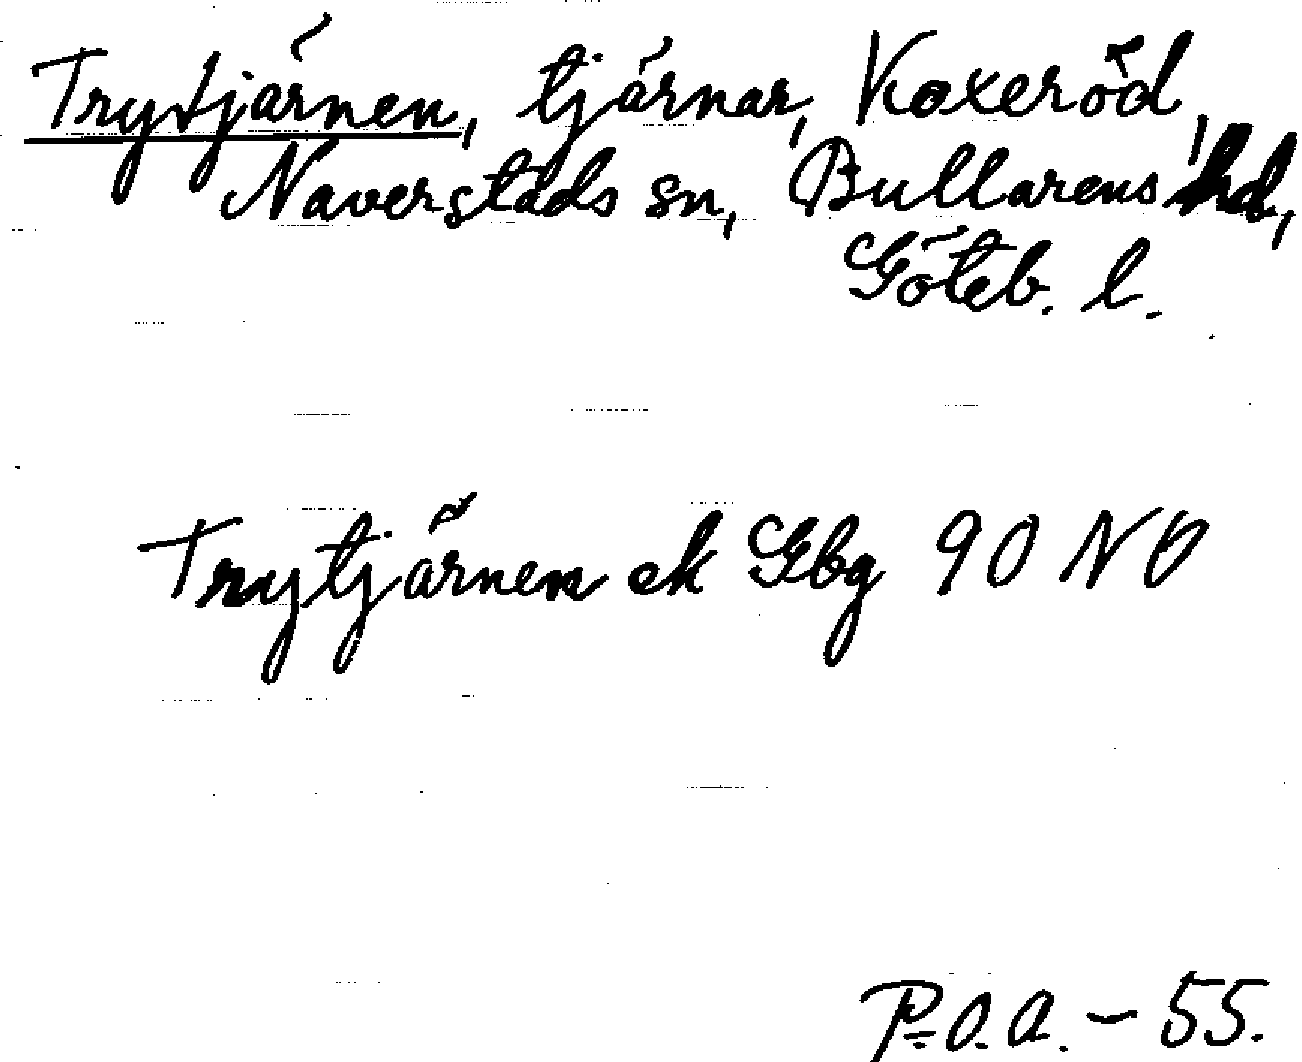 Trytjärnen, tjärnar, Koxeröd,
Naverstads sn, Bullarens hd,
Göteb. l.
Trytjärnen ek Gbg 90 NO
P.O.A. - 55.